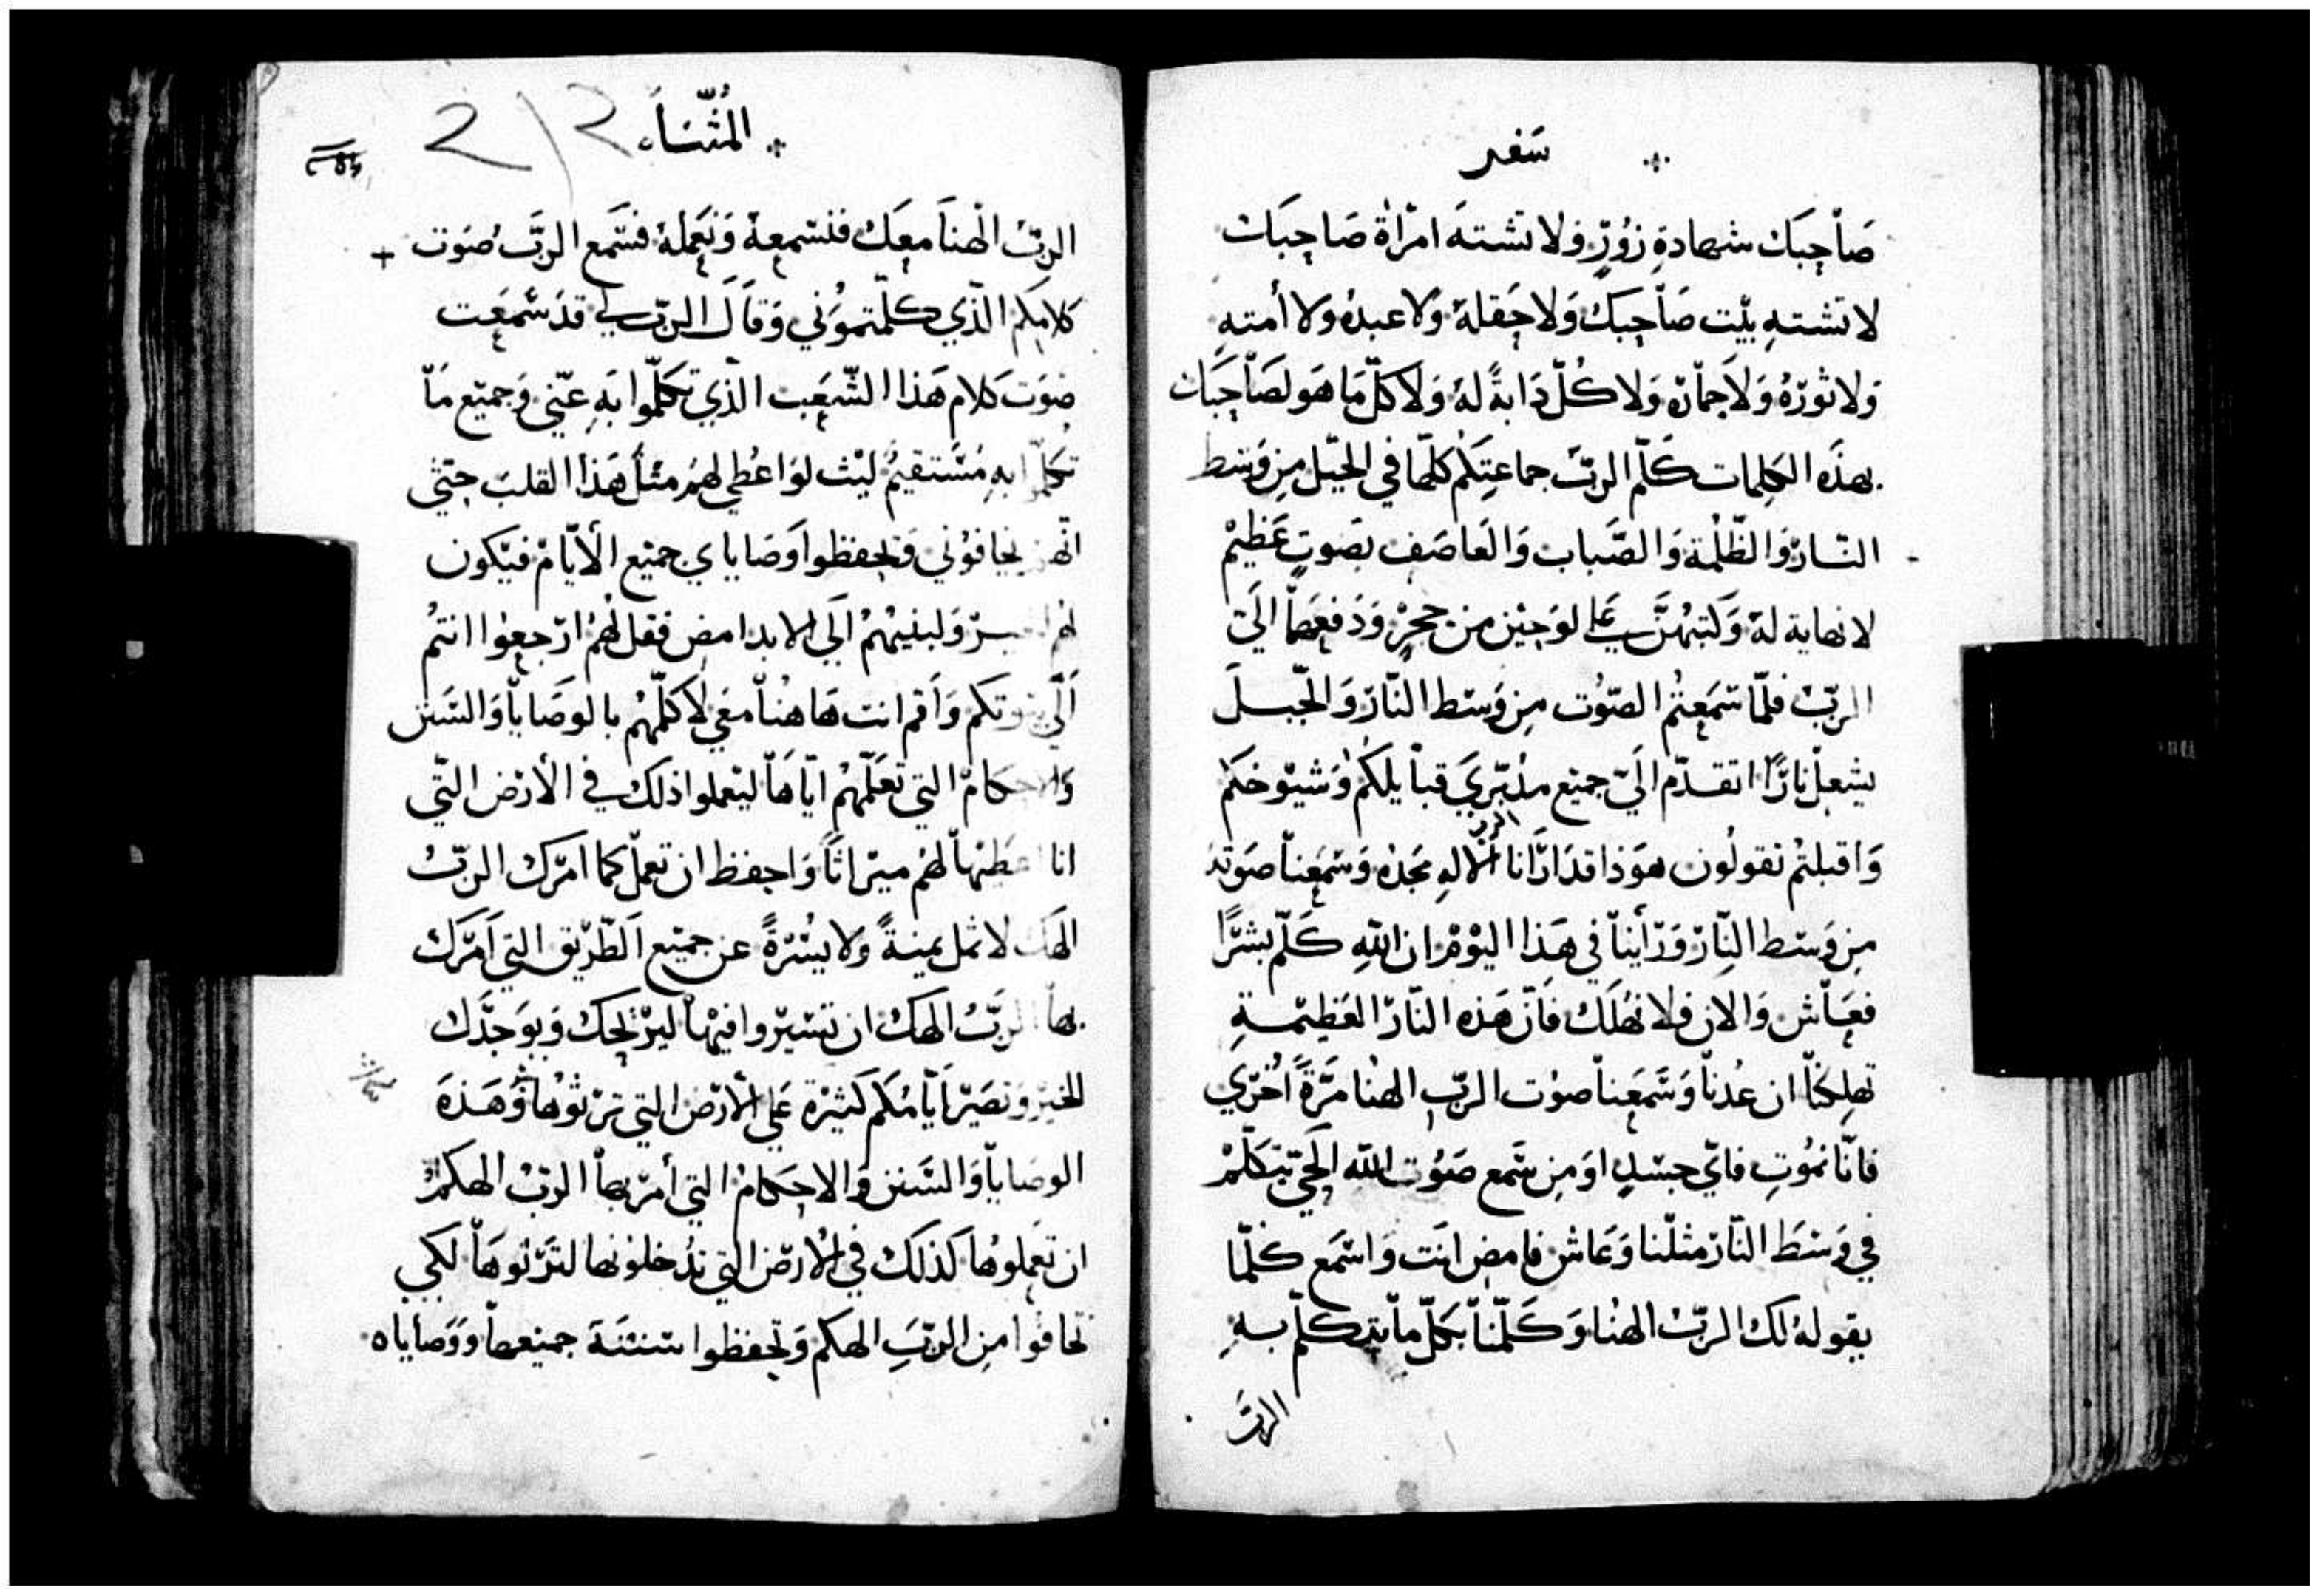 سفر
صاحبك شهادة زور ولا تشته امراة صاحبك
لا تشته بيت صاحبك ولا حقله ولا عبده ولا أمته
ولا ثوره ولا حماره ولا كل دابة له ولا كل ما هو لصاحبك
بهذه الكلمات كلم الرب جماعتكم كلها في الجبل من وسط
النار والظلمة والضباب والعاصف بصوت عظيم
لا نهاية له وكتبهن على لوحين من حجر ودفعها الي
الرب فلما سمعتم الصوت من وسط النار والجبل
يشعل نارا تقدم الي جميع مدبري قبايلكم وشيوخكم
واقبلتم تقولون هوذا قد ارانا الرب الاله مجده وسمعنا صوته
من وسط النار ورأينا في هذا اليوم ان الله كلم بشرا
فعاش والان فلا نهلك فان هذه النار العظيمة
تهلكنا ان عدنا وسمعنا صوت الرب الهنا مرة اخري
فانا نموت فاي جسد او من سمع صوت الله الحي يتكلم
في وسط النار مثلنا وعاش فامض انت واسمع كلما
يقوله لك الرب الهنا وكلمنا بكل ما يتكلم به
الرب
المثنا
2 12
الرب الهنا معك فنسمعه ونعمله فسمع الرب صوت
كلامكم الذي كلمتموني وقال الرب لي قد سمعت
صوت كلام هذا الشعب الذي تكلموا به عني وجميع ما
تكلموا به مستقيم ليت لو اعطي لهم مثل هذا القلب حتي
انهم يخافوني ويحفظوا وصاياي جميع الأيام فيكون
لهم ولبنيهم الي الابد امض فقل لهم ارجعوا انتم
الي بيوتكم واقم انت هاهنا معي لاكلمهم بالوصايا والسنن
والاحكام التي تعلمهم اياها ليعملوا ذلك في الأرض التي
انا اعطيها لهم ميراثا واحفظ ان تعمل كما امرك الرب
الهك لا تمل يمينة ولا يسرة عن جميع الطريق التي امرك
بها الرب الهك ان تسيروا فيها ليريحك ويوجدك
الخير وتصير ايامكم كثيرة علي الأرض التي ترثوها وهذه
الوصايا والسنن والاحكام التي أمر بها الرب الهكم
ان تعملوها كذلك في الارض التي تدخلونها لترثوها لكي
تخافوا من الرب الهكم وتحفظوا سننه جميعها ووصاياه